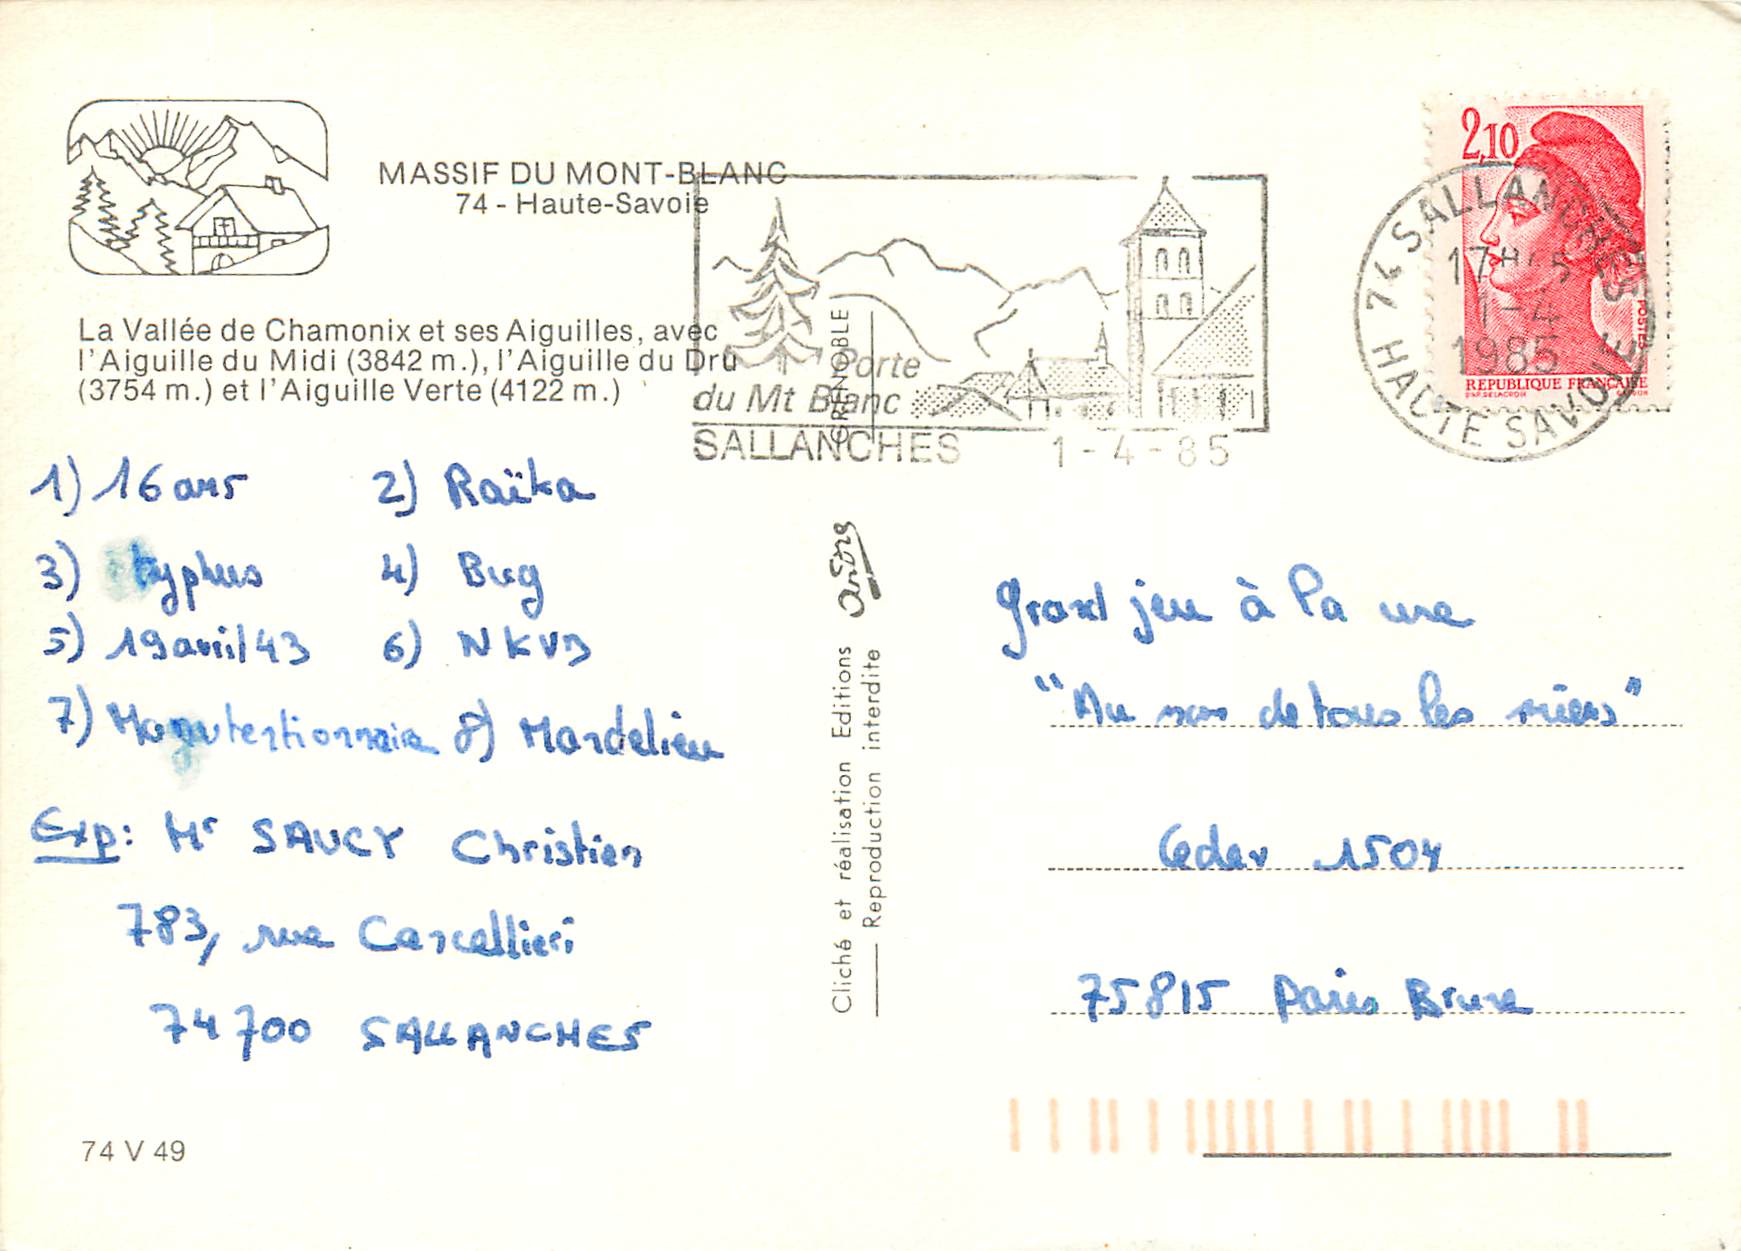 MASSIF DU MONT-BLANC
74 - Haute-Savoie
La Vallée de Chamonix et ses Aiguilles, avec
l'Aiguille du Midi (3842 m.), l'Aiguille du Dru
(3754 m.) et l'Aiguille Verte (4122 m.)
Porte
du Mt Blanc
SALLANCHES 1-4-85
2,10
74 SALLANCHES
17H15
1-4
1985
HAUTE SAVOIE
POSTES
REPUBLIQUE FRANÇAISE
1) 16 ans 2) Raïka
3) typhus 4) Bug
5) 19 avril 43 6) NKVD
7) Manutentionnaire 8) Mandelieu
Exp: Mr SAUCY Christien
783, rue Cancellieri
74700 SALLANCHES
74 V 49
GRENOBLE
André
Cliché et réalisation Editions
Reproduction interdite
Grand jeu à la une
"Au nom de tous les miens"
Cedex 1504
75815 Paris Brune